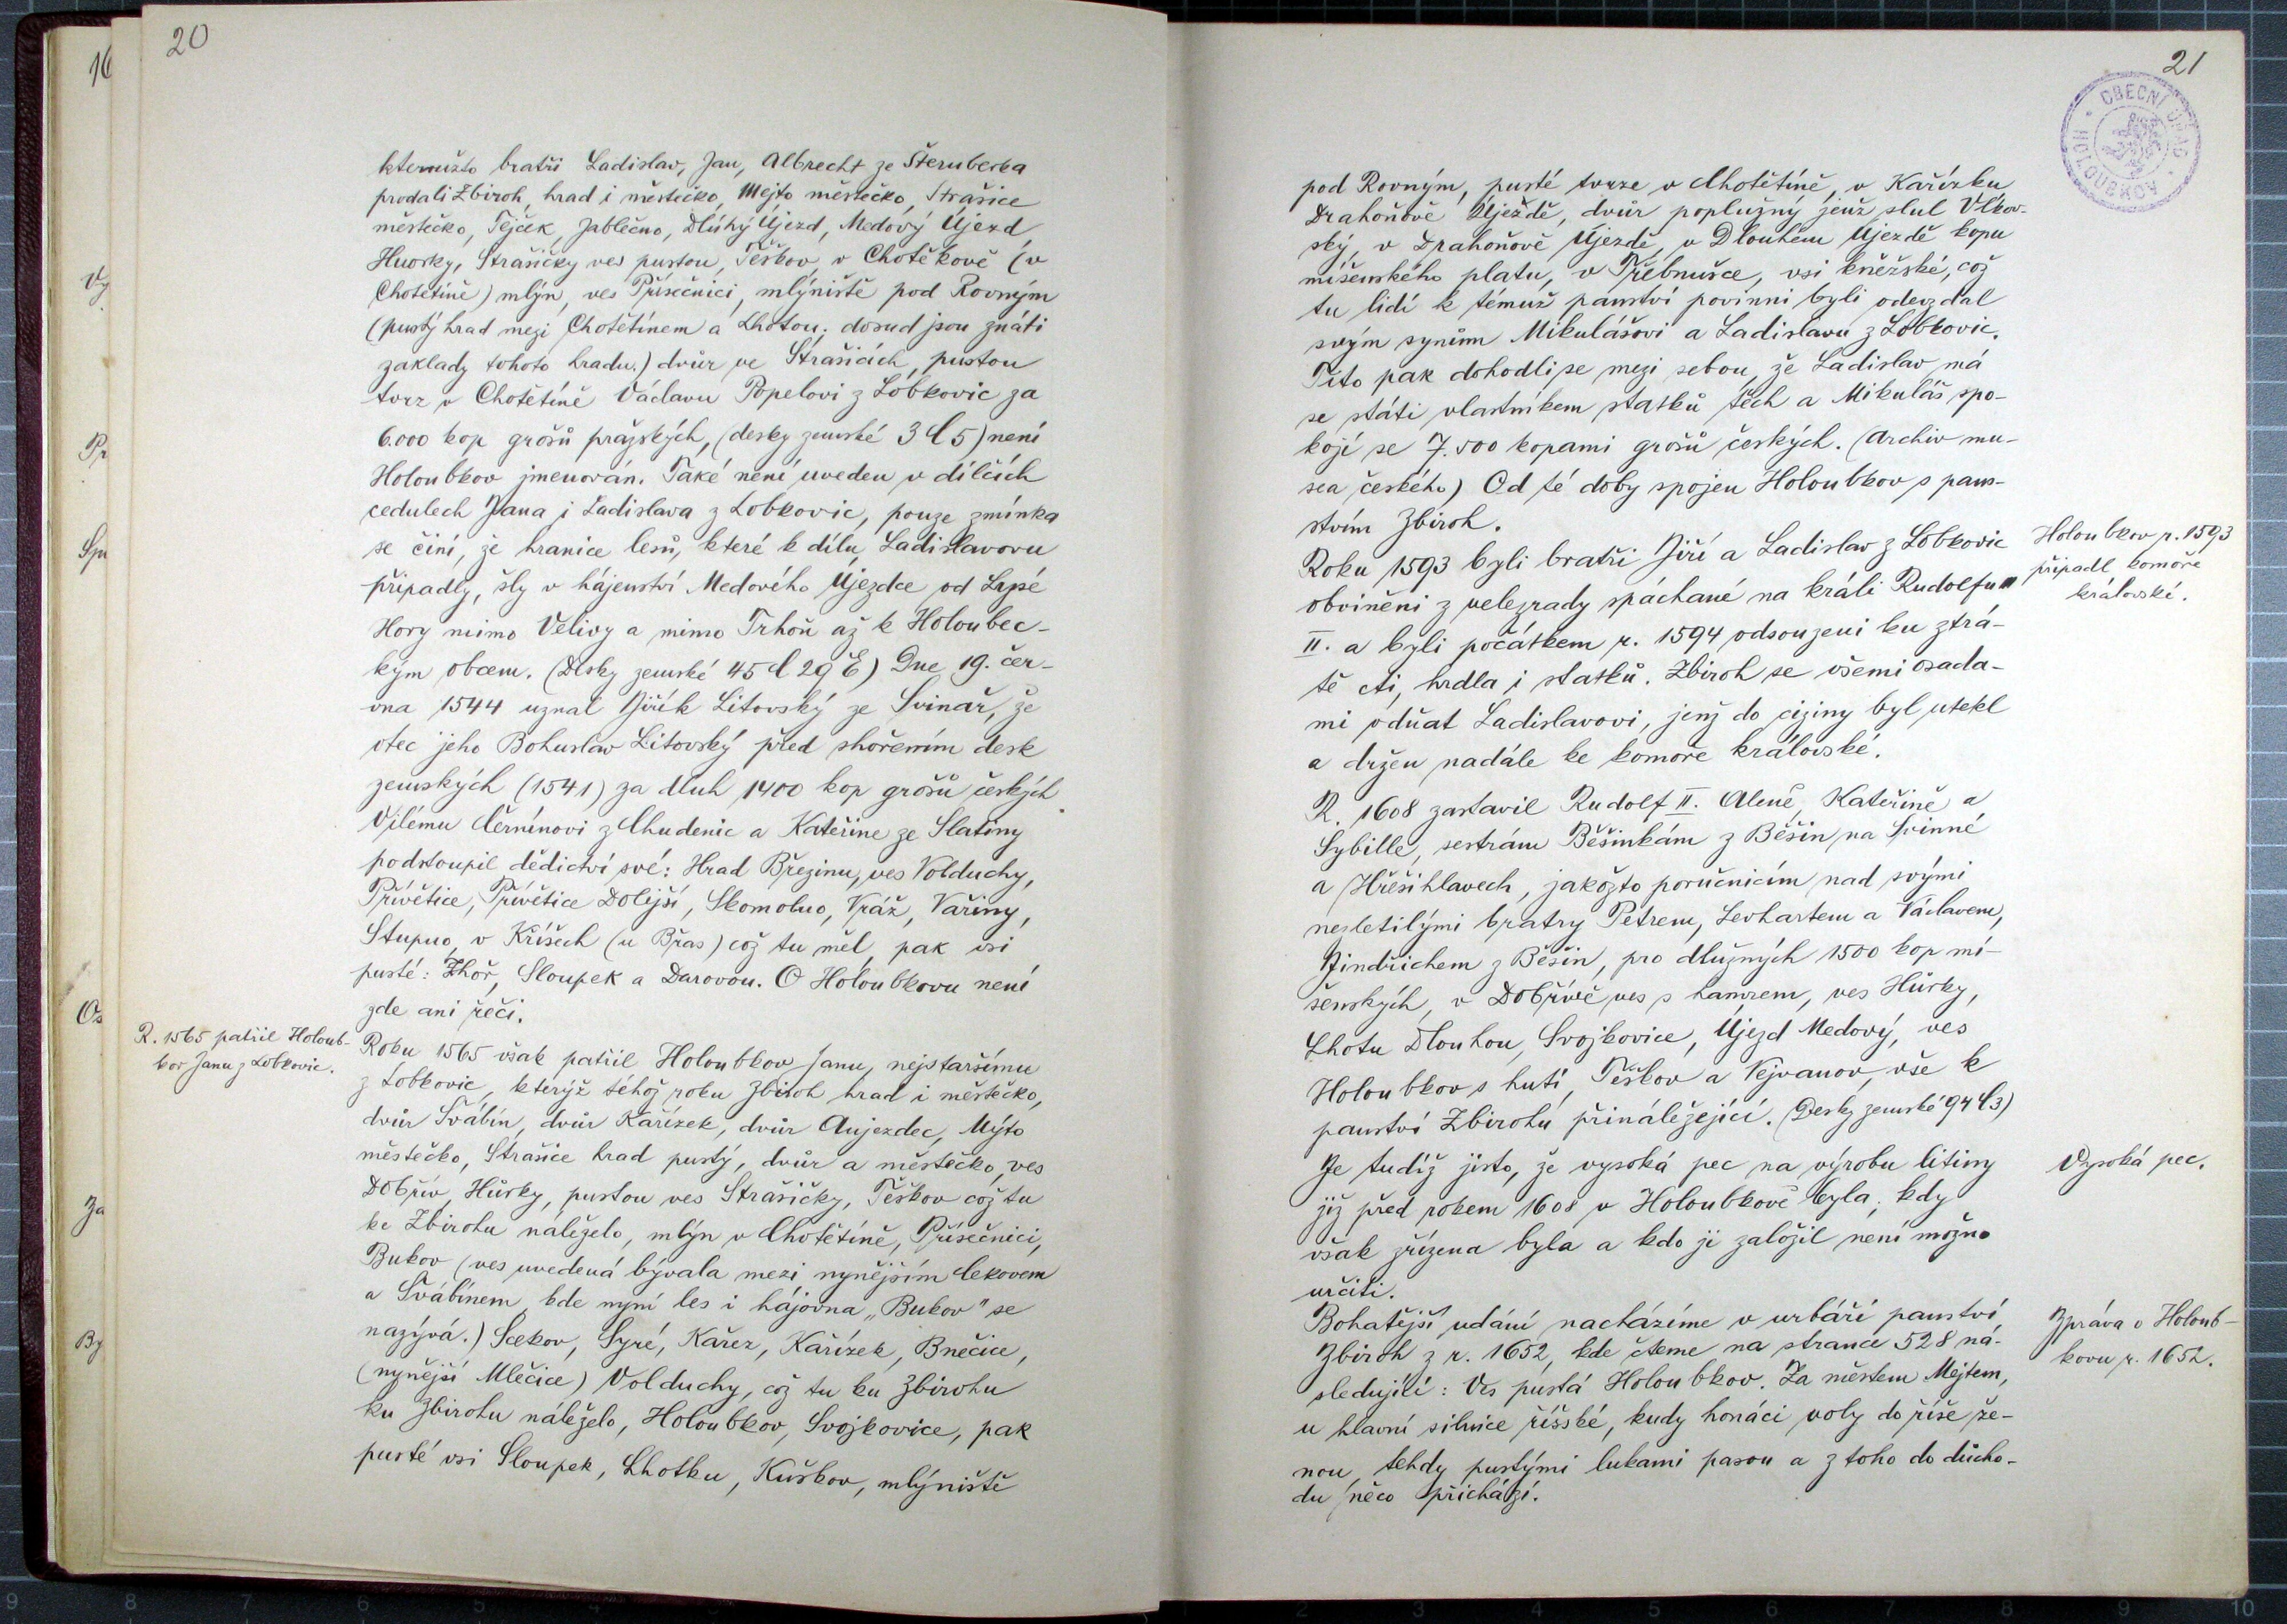 20
kterružto bratři Ladislav, Jan, Albrecht ze Šternberka
prodali Zbiroh, hrad i městečko, Mejto městečko, Strašice
městečko, Tejček, Jablečno, Dlúhý Újezd, Medový Újezd,
Huorky, Strašičky ves pustou, Těškov, v Chotěkově (v
Chotětíně) mlýn, ves Přísečnici, mlýniště pod Rovným
(pustý hrad mezi Chotětínem a Lhotou; dosud jsou znáti
zaklady tohoto hradu.) dvůr ve Strašicích, pustou
tvrz v Chotětíně Václavu Popelovi z Lobkovic za
6.000 kop grošů pražských, (desky zemské 3 C 5) není
Holoubkov jmenován. Také není uveden v dílčích
cedulech Jana i Ladislava z Lobkovic, pouze zmínka
se činí, že hranice lesů, které k dílu Ladislavovu
připadly, šly v hájenství Medového Újezdce od Lipé
Hory mimo Velivy a mimo Trhoň až k Holoubec-
kým obcem. (Desky zemské 45 d 29 E) Dne 19. čer-
vna 1544 uznal Jiřík Litovský ze Svinař, že
otec jeho Bohuslav Litovský před shořením desk
zemských (1541) za dluh 1400 kop grošů českých
Vilému Černínovi z Chudenic a Kateřine ze Slatiny
podstoupil dědictví své: Hrad Březinu, ves Volduchy,
Přívětice, Přívětice Dolejší, Skomolno, Vráž, Vařiny,
Stupno, v Kříšech (u Břas) což tu měl, pak vsi
pusté: Zhoř, Sloupek a Darovou. O Holoubkovu není
zde ani řeči.
R. 1565 patřil Holoub-
kov Janu z Lobkovic.
Roku 1565 však patřil Holoubkov Janu, nejstaršímu
z Lobkovic, kterýž téhož roku Zbiroh hrad i městečko,
dvůr Švábín, dvůr Kařízek, dvůr Aujezdec, Mýto
městečko, Strašice hrad pustý, dvůr a městečko, ves
Dobřív, Hůrky, pustou ves Strašičky, Těškov což tu
ke Zbirohu náleželo, mlýn v Chotětíně, Přísečnici,
Bukov (ves uvedená bývala mezi nynějším Cekovem
a Švábínem, kde nyní les i hájovna "Bukov" se
nazývá.) Scekov, Syré, Kařez, Kařízek, Bnečice,
(nynější Mlečice) Volduchy, což tu ku Zbirohu
ku Zbirohu náleželo, Holoubkov, Svojkovice, pak
pusté vsi Sloupek, Lhotku, Kuškov, mlýniště
16
Vy
Př
Spr
Os
Za
By
21
OBECNÍ ÚŘAD HOLOUBKOV
pod Rovným, pusté tvrze v Chotětíně, v Kařízku,
Drahoňově Újezdě, dvůr poplužný jenž slul Vlkov-
ský, v Drahoňově Újezdě, v Dlouhém Újezdě kopu
míšenského platu, v Třebnušce, vsi kněžské, což
tu lidí k témuž panství povinni byli odevzdal
svým synům Mikulášovi a Ladislavu z Lobkovic.
Tito pak dohodli se mezi sebou, že Ladislav má
se státi vlastníkem statků těch a Mikuláš spo-
kojí se 7.500 kopami grošů českých. (Archiv mu-
sea českého) Od té doby spojen Holoubkov s pan-
stvím Zbiroh.
Roku 1593 byli bratři Jiří a Ladislav z Lobkovic
obviněni z velezrady spáchané na králi Rudolfu
II. a byli počátkem r. 1594 odsouzeni ku ztrá-
tě cti, hrdla i statků. Zbiroh se všemi osada-
mi odňat Ladislavovi, jenž do ciziny byl utekl
a držen nadále ke komoře královské.
Holoubkov r. 1593
připadl komoře
královské.
R. 1608 zastavil Rudolf II. Aleně, Kateřině a
Sybille, sestrám Běšinkám z Běšin na Svinné
a Hřešihlavech, jakožto poručnicím nad svými
nezletilými bratry Petrem, Levhartem a Václavem,
Jindřichem z Běšin, pro dlužných 1500 kop mí-
šenských, v Dobřívě ves s hamrem, ves Hůrky,
Lhotu Dlouhou, Svojkovice, Újezd Medový, ves
Holoubkov s hutí, Těškov a Vejvanov, vše k
panství Zbirohu přináležející. (Desky zemské 94 C3)
Je tudíž jisto, že vysoká pec na výrobu litiny
již před rokem 1608 v Holoubkově byla; kdy
však zřízena byla a kdo ji založil není možno
určiti.
Vysoká pec.
Bohatější udání nacházíme v urbáři panství
Zbiroh z r. 1652, kde čteme na straně 528 ná-
sledující: Ves pustá Holoubkov. Za městem Mejtem,
u hlavní silnice říšské, kudy honáci voly do říše že-
nou, tehdy pustými lukami pasou a z toho do důcho-
du něco přichází.
Zpráva o Holoub-
kovu r. 1652.